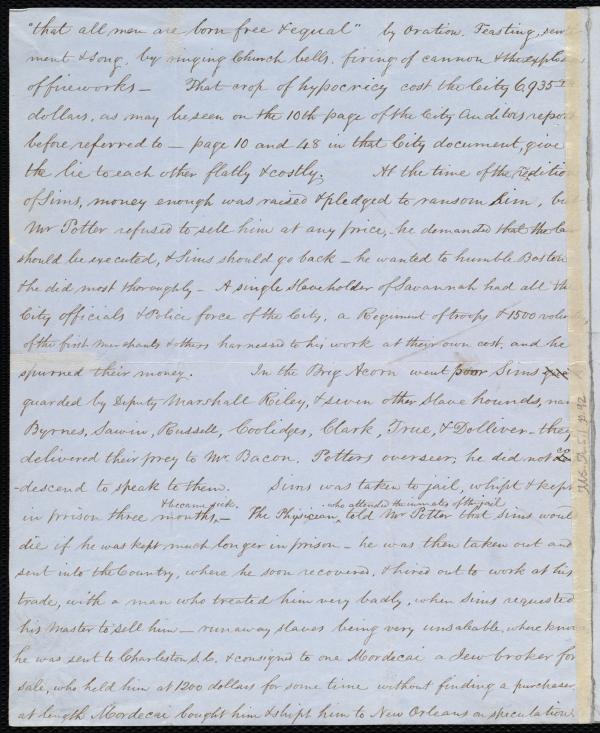 "that all men are born free & equal" by Oration, Feasting,
ment & song, by ringing Church bells, firing of cannon & the
of fireworks — That crop of hypocricy cost the City 6,935
dollars, as may be seen on the 10th page of the City Auditors report
before referred to — page 10 and 48 in that City document, give
the lie to each other flatly & costly. At the time of the rendition
of Sims, money enough was raised & pledged to ransom him, but
Mr Potter refused to sell him at any price, he demanded that the law
should be executed, & Sims should go back — he wanted to humble Boston
& he did most thoroughly — A single slaveholder of Savannah had all the
City officials & Police force of the City, a Regiment of troops & 1500
of the first merchants & others harnessed to his work at their own cost, and he
spurned their money. In the Brig Acorn went poor Sims
guarded by Deputy Marshall Riley, & seven other slave hounds,
Byrnes, Sawin, Russell, Coolidge, Clark, True, & Dolliver — they
delivered their prey to Mr. Bacon, Potters overseer; he did not
-descend to speak to them. Sims was taken to jail, whipt & kept
& became sick. who attended the inmates of the jail
in prison three months, — The Physician, told Mr Potter that Sims would
die if he was kept much longer in prison — he was then taken out and
sent into the Country, where he soon recovered, & hired out to work at his
trade, with a man who treated him very badly, when Sims requested
his master to sell him — runaway slaves being very unsaleable, where known
he was sent to Charleston S.C. & consigned to one Mordecai a Jew broker for
sale, who held him at 1200 dollars for some time without finding a purchaser,
at length Mordecai bought him & shipt him to New Orleans on speculation,